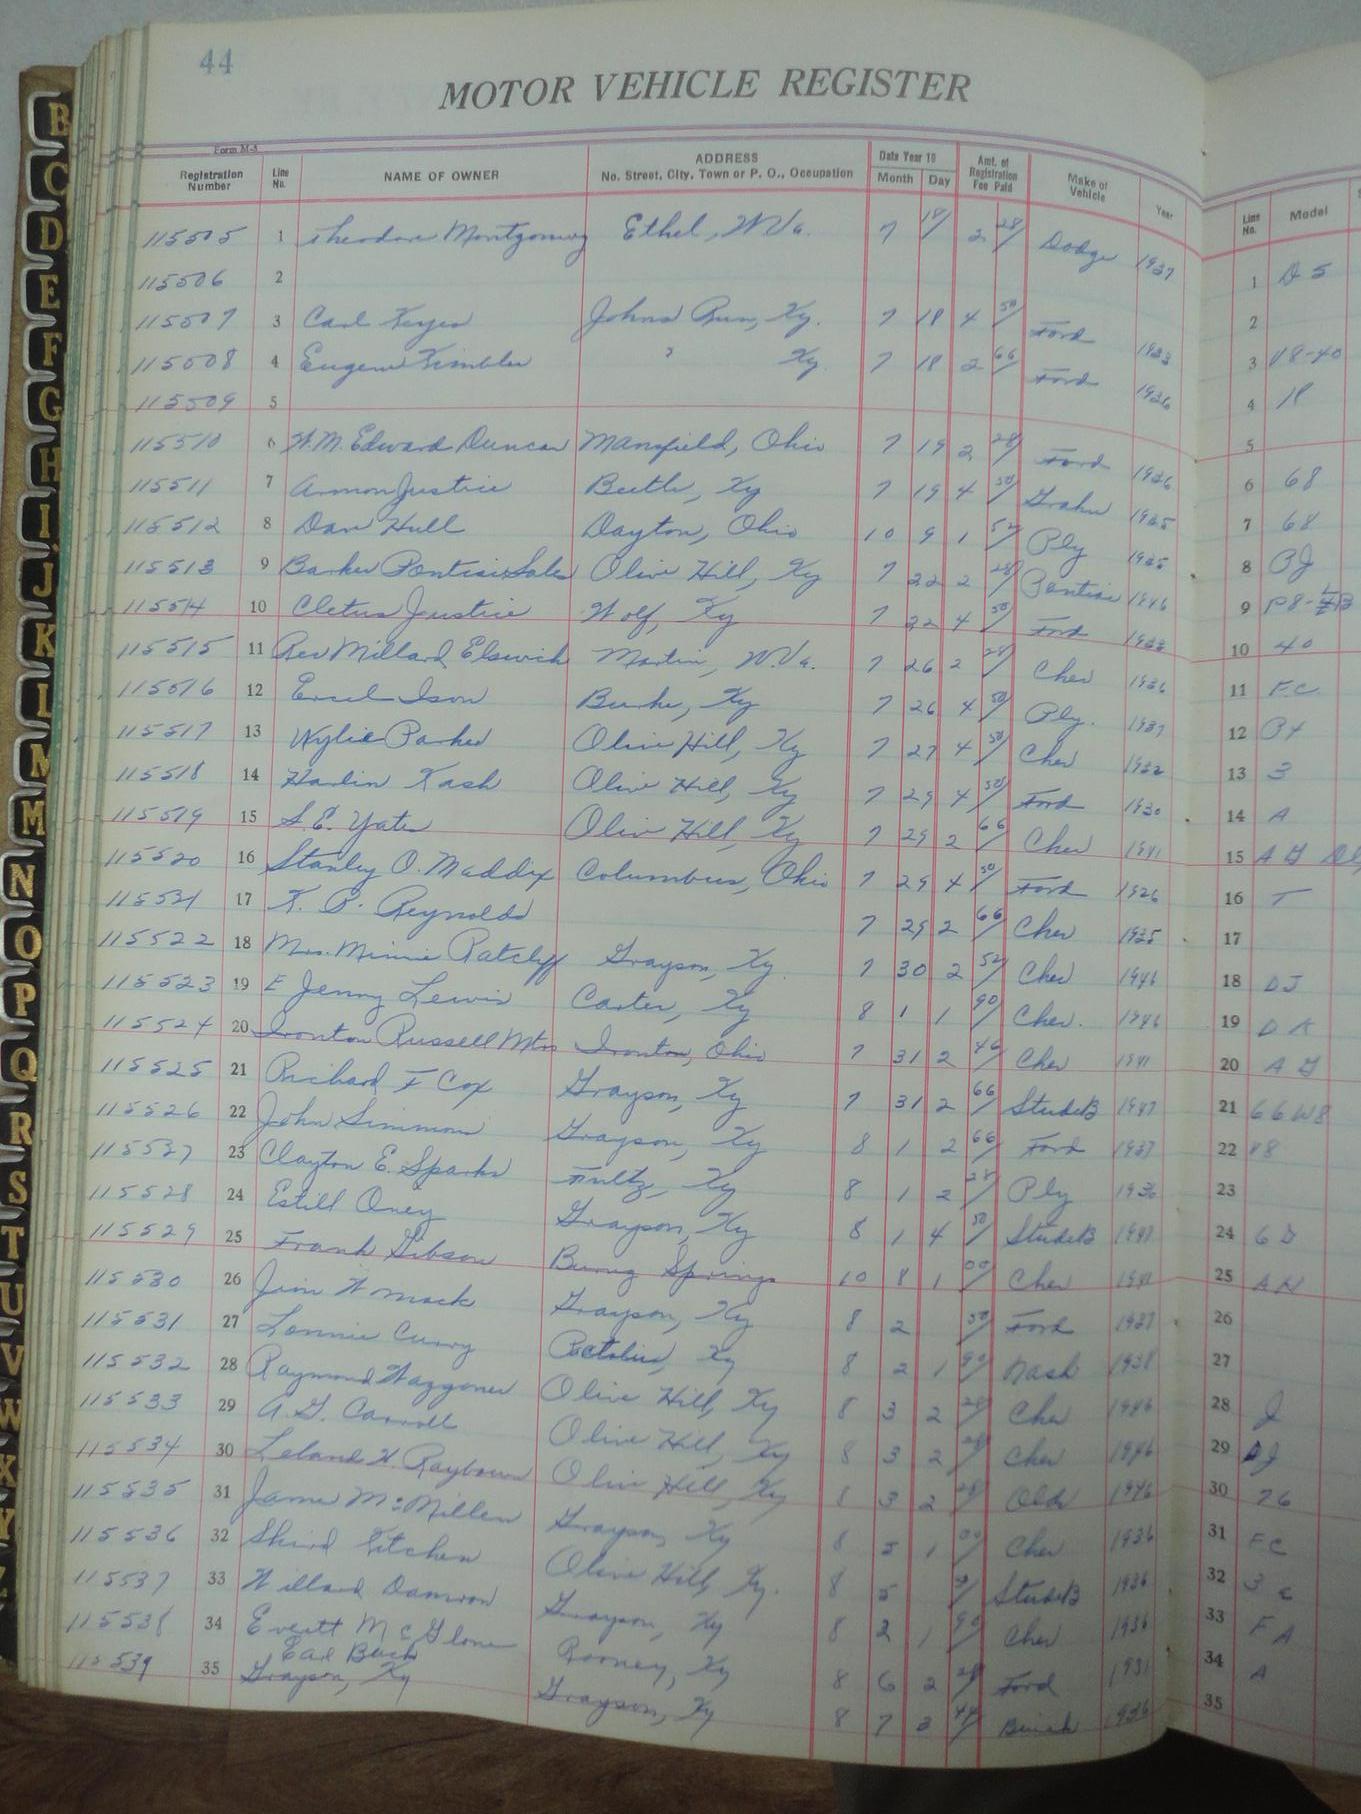 44
MOTOR VEHICLE REGISTER
Form M-5
Registration Number Line No. NAME OF OWNER ADDRESS No. Street, City, Town or P. O., Occupation Date Year 19 Month Day Amt. of Registration Fee Paid Make of Vehicle Year Line No. Model
115505 1 Theodore Montgomery Ethel, W.Va. 7 18/ 2 28/ Dodge 1937 1 D 5
115506 2 2
115507 3 Carl Keyes Johns Run, Ky. 7 18 4 50/ Ford 1933 3 V8-40
115508 4 Eugene Kimbler ? Ky. 7 18 2 66/ Ford 1936 4 18
115509 5 5
115510 6 W.M. Edward Duncan Mansfield, Ohio 7 19 2 28/ Ford 1936 6 68
115511 7 Armon Justice Beetle, Ky 7 19 4 50/ Grahm 1935 7 68
115512 8 Dan Hull Dayton, Ohio 10 9 1 52/ Ply 1935 8 PJ
115513 9 Barker Pontiac Sales Olive Hill, Ky 7 22 2 28/ Pontiac 1946 9
115514 10 Cletus Justice Wolf, Ky 7 22 4 50/ Ford 1933 10 40
115515 11 Rev Millard Elswick Martin, W.Va. 7 26 2 28/ Chev 1936 11 F.C
115516 12 Ercel Ison Burke, Ky 7 26 4 50/ Ply. 1937 12 P4
115517 13 Wylie Parker Olive Hill, Ky 7 27 4 50/ Chev 1932 13 3
115518 14 Harlin Kash Olive Hill, Ky 7 29 4 50/ Ford 1930 14 A
115519 15 S.E. Yates Olive Hill, Ky 7 29 2 66/ Chev 1941 15 A G
115520 16 Stanley O. Maddix Columbus, Ohio 7 29 4 50/ Ford 1926 16 T
115521 17 K. P. Reynolds 7 29 2 66/ Chev 1935 17
115522 18 Mrs. Minnie Ratcliff Grayson, Ky. 7 30 2 52/ Chev 1946 18 DJ
115523 19 E Jenny Lewis Carter, Ky 8 1 1 90/ Chev. 1946 19 D K
115524 20 Ironton Russell Mtrs Ironton, Ohio 7 31 2 46/ Chev 1941 20 A G
115525 21 Richard F Cox Grayson, Ky 7 31 2 66/ StudeB 1947 21 66W8
115526 22 John Simmons Grayson, Ky 8 1 2 66/ Ford 1937 22 V8
115527 23 Clayton E. Sparks Fultz, Ky 8 1 2 28/ Ply 1936 23
115528 24 Estill Oney Grayson, Ky 8 1 4 50/ StudeB 1947 24 6 D
115529 25 Frank Gibson Burng Springs 10 8 1 00/ Chev 1941 25 A H
115530 26 Jim Womack Grayson, Ky 8 2 50/ Ford 1937 26
115531 27 Lonnie Curry Pactolus, Ky 8 2 1 90/ Nash 1938 27
115532 28 Raymond Waggoner Olive Hill, Ky 8 3 2 28/ Chev 1946 28 J
115533 29 A.G. Carroll Olive Hill, Ky 8 3 2 28/ Chev 1946 29 DJ
115534 30 Leland H. Raybourn Olive Hill, Ky 8 3 2 28/ Olds 1946 30 76
115535 31 James McMillen Grayson, Ky 8 5 1 00/ Chev 1936 31 FC
115536 32 Kitchen Olive Hill, Ky. 8 5 StudeB 1936 32 3 c
115537 33 Willard Damron Grayson, Ky 8 2 1 90/ Chev 1936 33 F A
115538 34 Everett McGlone Rooney, Ky 8 6 2 28/ Ford 1931 34 A
115539 35 Earl Buck Grayson, Ky Grayson, Ky 8 7 3 44/ Buick 1936 35
B
C
D
E
F
G
H
I
J
K
L
M
M
N
O
P
Q
R
S
T
U
V
W
X
Y
Z